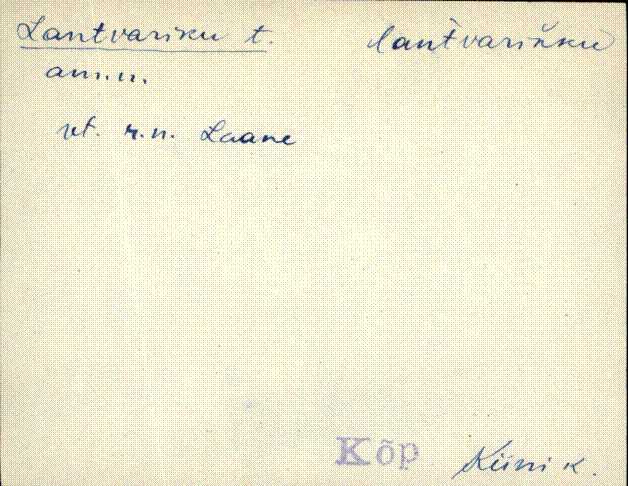 Lantvariku t. lant̀variǹku
am.n.
vt. r.n. Laane
Kõp Kiini k.